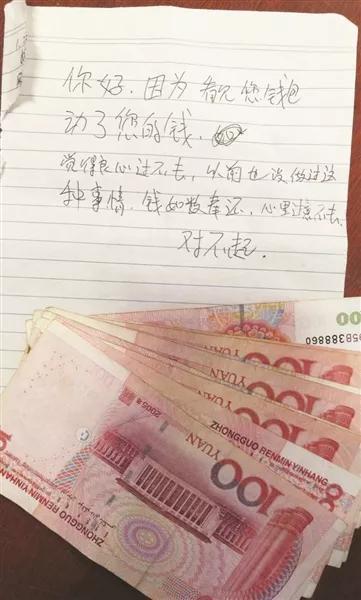 你好.因为看见您钱包
动了您的钱.
觉得良心过不去,以前也没做过这
种事情.钱如数奉还,心里过意不去.
对不起.
100
YUAN
100
YUAN
100
YUAN
100
YUAN
100
2005年
ZHONGGUO RENMIN YINHANG
100
YUAN
ZHONGGUO RENMIN YINHANG